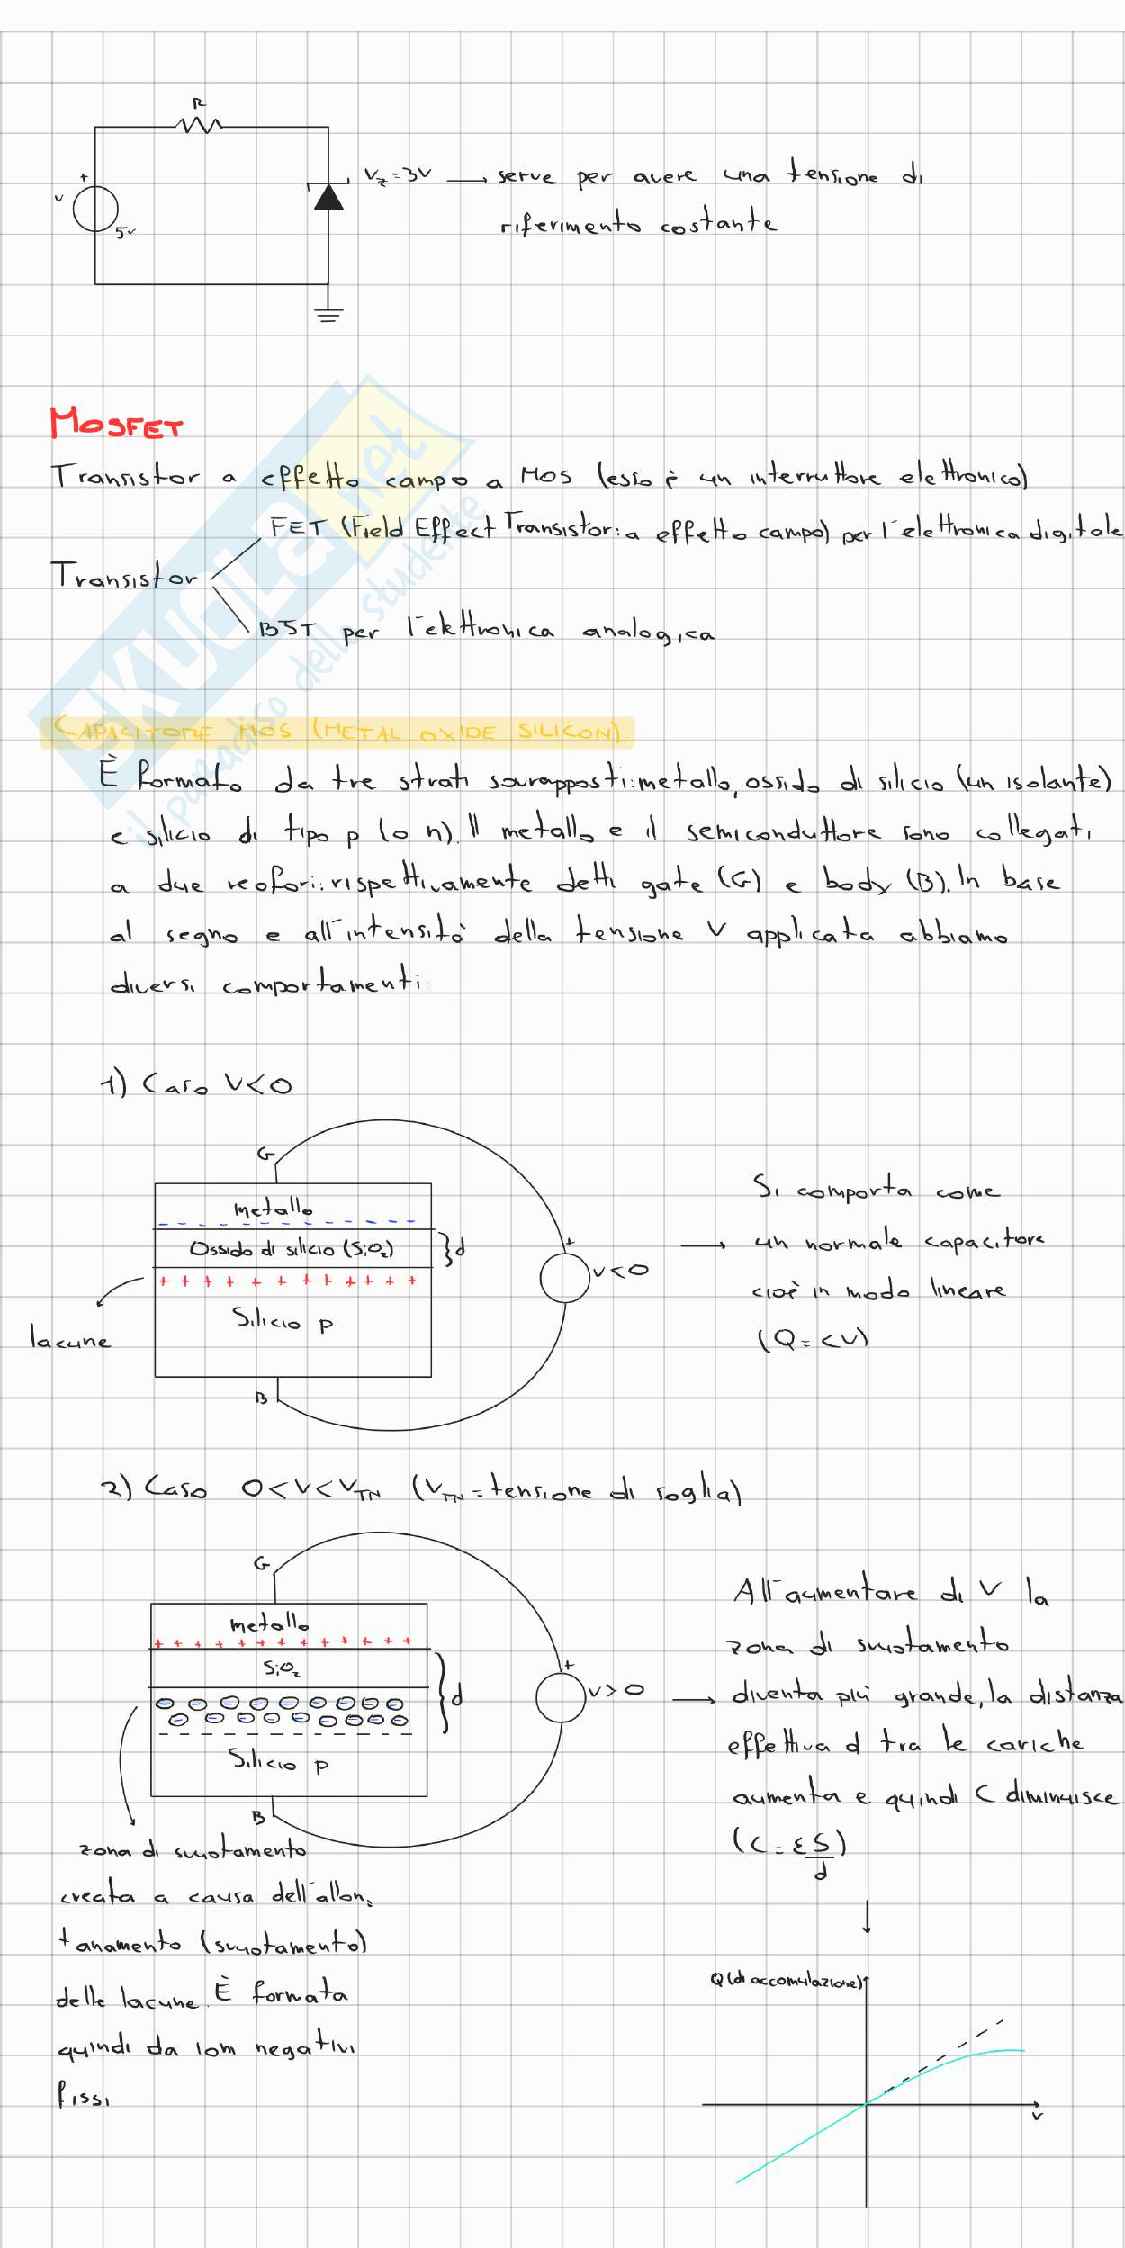 R
+
V
5V
Vz=3V → serve per avere una tensione di
riferimento costante
MOSFET
Transistor a effetto campo a MOS (esso è un interruttore elettronico)
FET (Field Effect Transistor: a effetto campo) per l'elettronica digitale
Transistor
BJT per l'elettronica analogica
SKUOLA.net
il paradiso dello studente
CAPACITORE MOS (METAL OXIDE SILICON)
È formato da tre strati sovrapposti: metallo, ossido di silicio (un isolante)
e silicio di tipo p (o n). Il metallo e il semiconduttore sono collegati
a due reofori: rispettivamente detti gate (G) e body (B). In base
al segno e all'intensità della tensione V applicata abbiamo
diversi comportamenti
1) Caso V<0
G
metallo
Ossido di silicio (SiO2)
d
+ + + + + + + + + + +
Silicio p
lacune
B
+
V<0
Si comporta come
→ un normale capacitore
cioè in modo lineare
(Q=CV)
2) Caso 0<V<VTN (VTN=tensione di soglia)
G
metallo
+ + + + + + + + + + + +
SiO2
d
Silicio p
B
+
V>0
All'aumentare di V la
zona di svuotamento
→ diventa più grande, la distanza
effettiva d tra le cariche
aumenta e quindi C diminuisce
(C=εS/d)
zona di svuotamento
creata a causa dell'allon-
tanamento (svuotamento)
delle lacune. È formata
quindi da ioni negativi
fissi
Q(di accomulazione)
V